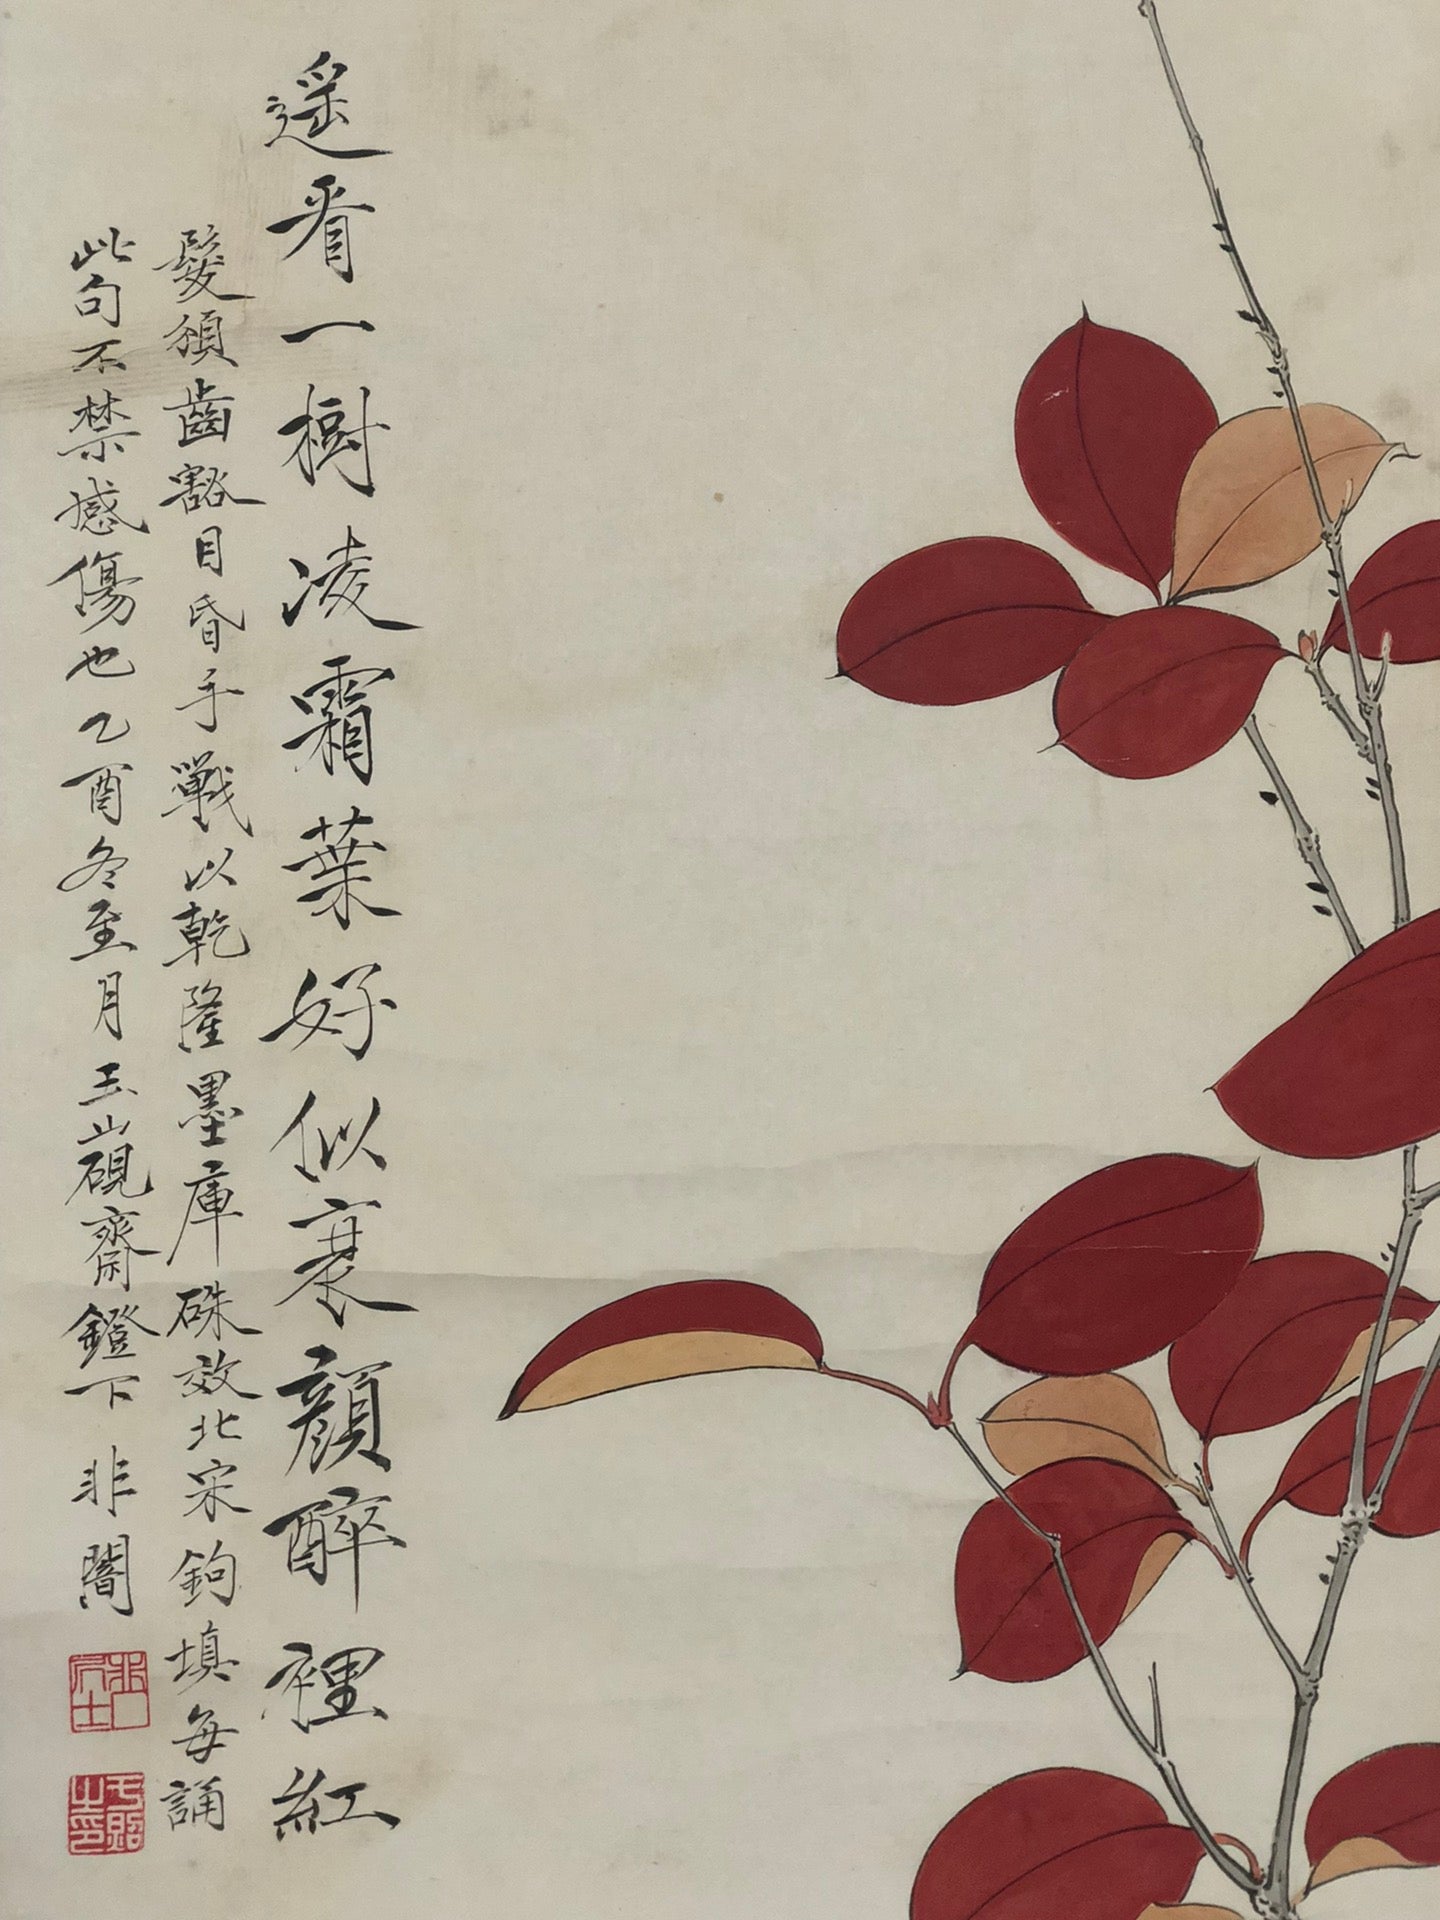 遥看一樹凌霜葉好似衰顔醉裡紅
髮頒齒豁目昏手戰以乾隆墨庫硃效北宋鉤填每誦
此句不禁感傷也乙酉冬至月玉山硯齋鐙下非闇
非厂居士
于照之印